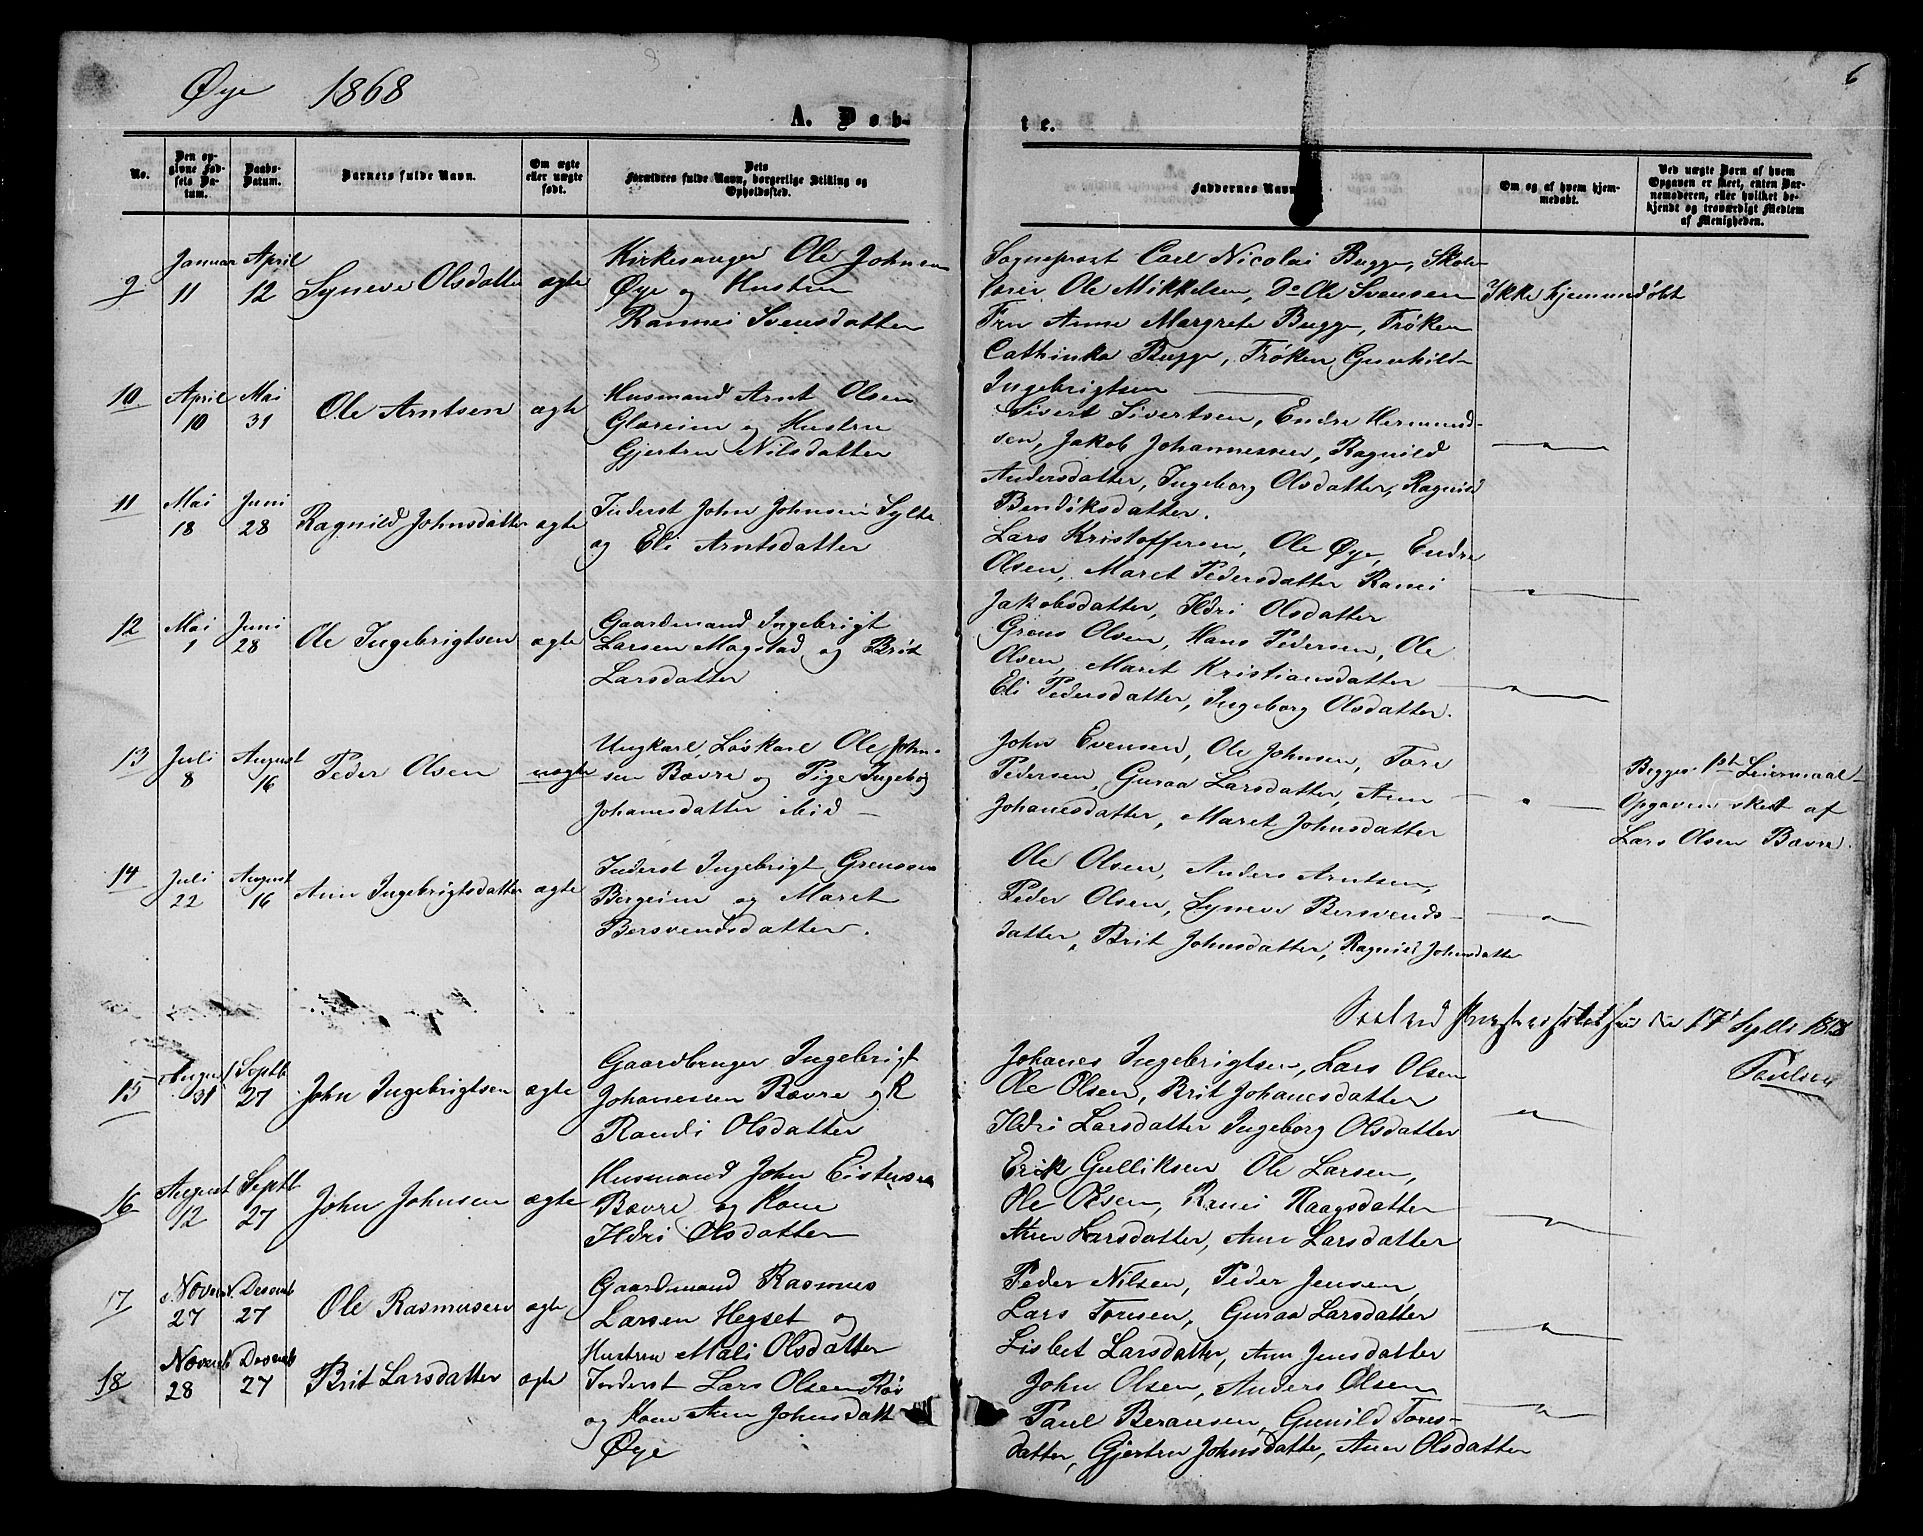 6
Øye 1868
A. Døb-
te.
No.
Den op-
givne Fød-
sels Da-
tum.
Daabs-
Datum.
Barnets fulde Navn.
Om ægte
eller uægte
født.
Dets
Forældres fulde Navn, borgerlige Stilling og
Opholdsted.
Faddernes Navn
Om og af hvem hjem-
medøbt.
Ved uægte Børn af hvem
Opgaven er skeet, enten Bar-
nemoderen, eller hvilket be-
kjendt og troværdigt Medlem
af Menigheden.
9
Januar
11
April
12
Syneve Olsdatter
ægte
Kirkesanger Ole Johnsen
Øye og Hustru
Rannei Svensdatter
Sogneprest Carl Nicolai Bugge, Skole
lærer Ole Mikkelsen, Do Ole Svensen
Fru Anne Margrete Bugge, Frøken
Cathinka Bugge, Frøken Gunhild
Ingebrigtsen
Ikke hjemmedøbt
10
April
10
Mai
31
Ole Arntsen
ægte
Husmand Arnt Olsen
Glæreim og Hustru
Gjertru Nilsdatter
Sivert Sivertsen, Endre Hermund-
sen, Jakob Johannessen, Ragnild
Andersdatter, Ingeborg Olsdatter, Ragnild
Bendiksdatter.
11
Mai
18
Juni
28
Ragnild Johnsdatter
ægte
Inderst John Johnsen Sylte
og Eli Arntsdatter
Lars Kristoffersen, Ole Øye, Endre
Olsen, Maret Pedersdatter Ranei
Jakobsdatter, Ildri Olsdatter
12
Mai
1
Juni
28
Ole Ingebrigtsen
ægte
Gaardmand Ingebrigt
Larsen Mogstad og Brit
Larsdatter
Grens Olsen, Hans Pedersen, Ole
Olsen, Maret Kristiansdatter
Eli Pedersdatter, Ingeborg Olsdatter.
13
Juli
8
August
16
Peder Olsen
uægte
Ungkarl, Løskarl Ole John-
sen Bævre og Pige Ingeborg
Johanesdatter ibid
John Evensen, Ole Johnsen, Tore
Pedersen, Guraa Larsdatter, Ann
Johanesdatter, Maret Johnsdatter
Begges 1ste Leiermaal
Opgaven skeet af
Lars Olsen Bævre.
14
Juli
22
August
16
Ann Ingebrigtsdatter
ægte
Inderst Ingebrigt Grensen
Bergeim og Maret
Bersvendsdatter.
Ole Olsen, Anders Arntsen,
Peder Olsen, Syneve Bersvends-
datter, Brit Johnsdatter, Ragnild Johnsdatter
17
Paulsen
15
August
31
Septb
27
John Ingebrigtsen
ægte
Gaardbruger Ingebrigt
Johanessen Bævre og K
Randi Olsdatter
Johanes Ingebrigtsen, Lars Olsen
Ole Olsen, Brit Johanesdatter
Ildri Larsdatter Ingeborg Olsdatter
16
August
12
Septb
27
John Johnsen
ægte
Husmand John Eistensen
Bævre og Kone
Ildri Olsdatter
Erik Gulliksen Ole Larsen,
Ole Olsen, Ranei Haagsdatter
Ann Larsdatter, Ann Larsdatter
17
Novemb
27
Desemb
27
Ole Rasmusen
ægte
Gaardmand Rasmus
Larsen Hegset og
Hustru Mali Olsdatter
Peder Nilsen, Peder Jensen,
Lars Toresen, Guraa Larsdatter
Lisbet Larsdatter, Ann Jensdatter
18
Novemb
28
Desemb
27
Brit Larsdatter
ægte
Inderst Lars Olsen
og Kone Ann Johnsdatt
Øye
John Olsen, Anders Olsen
Paul Beransen, Gunild Tores-
datter, Gjertru Johnsdatter, Ann Olsdatter